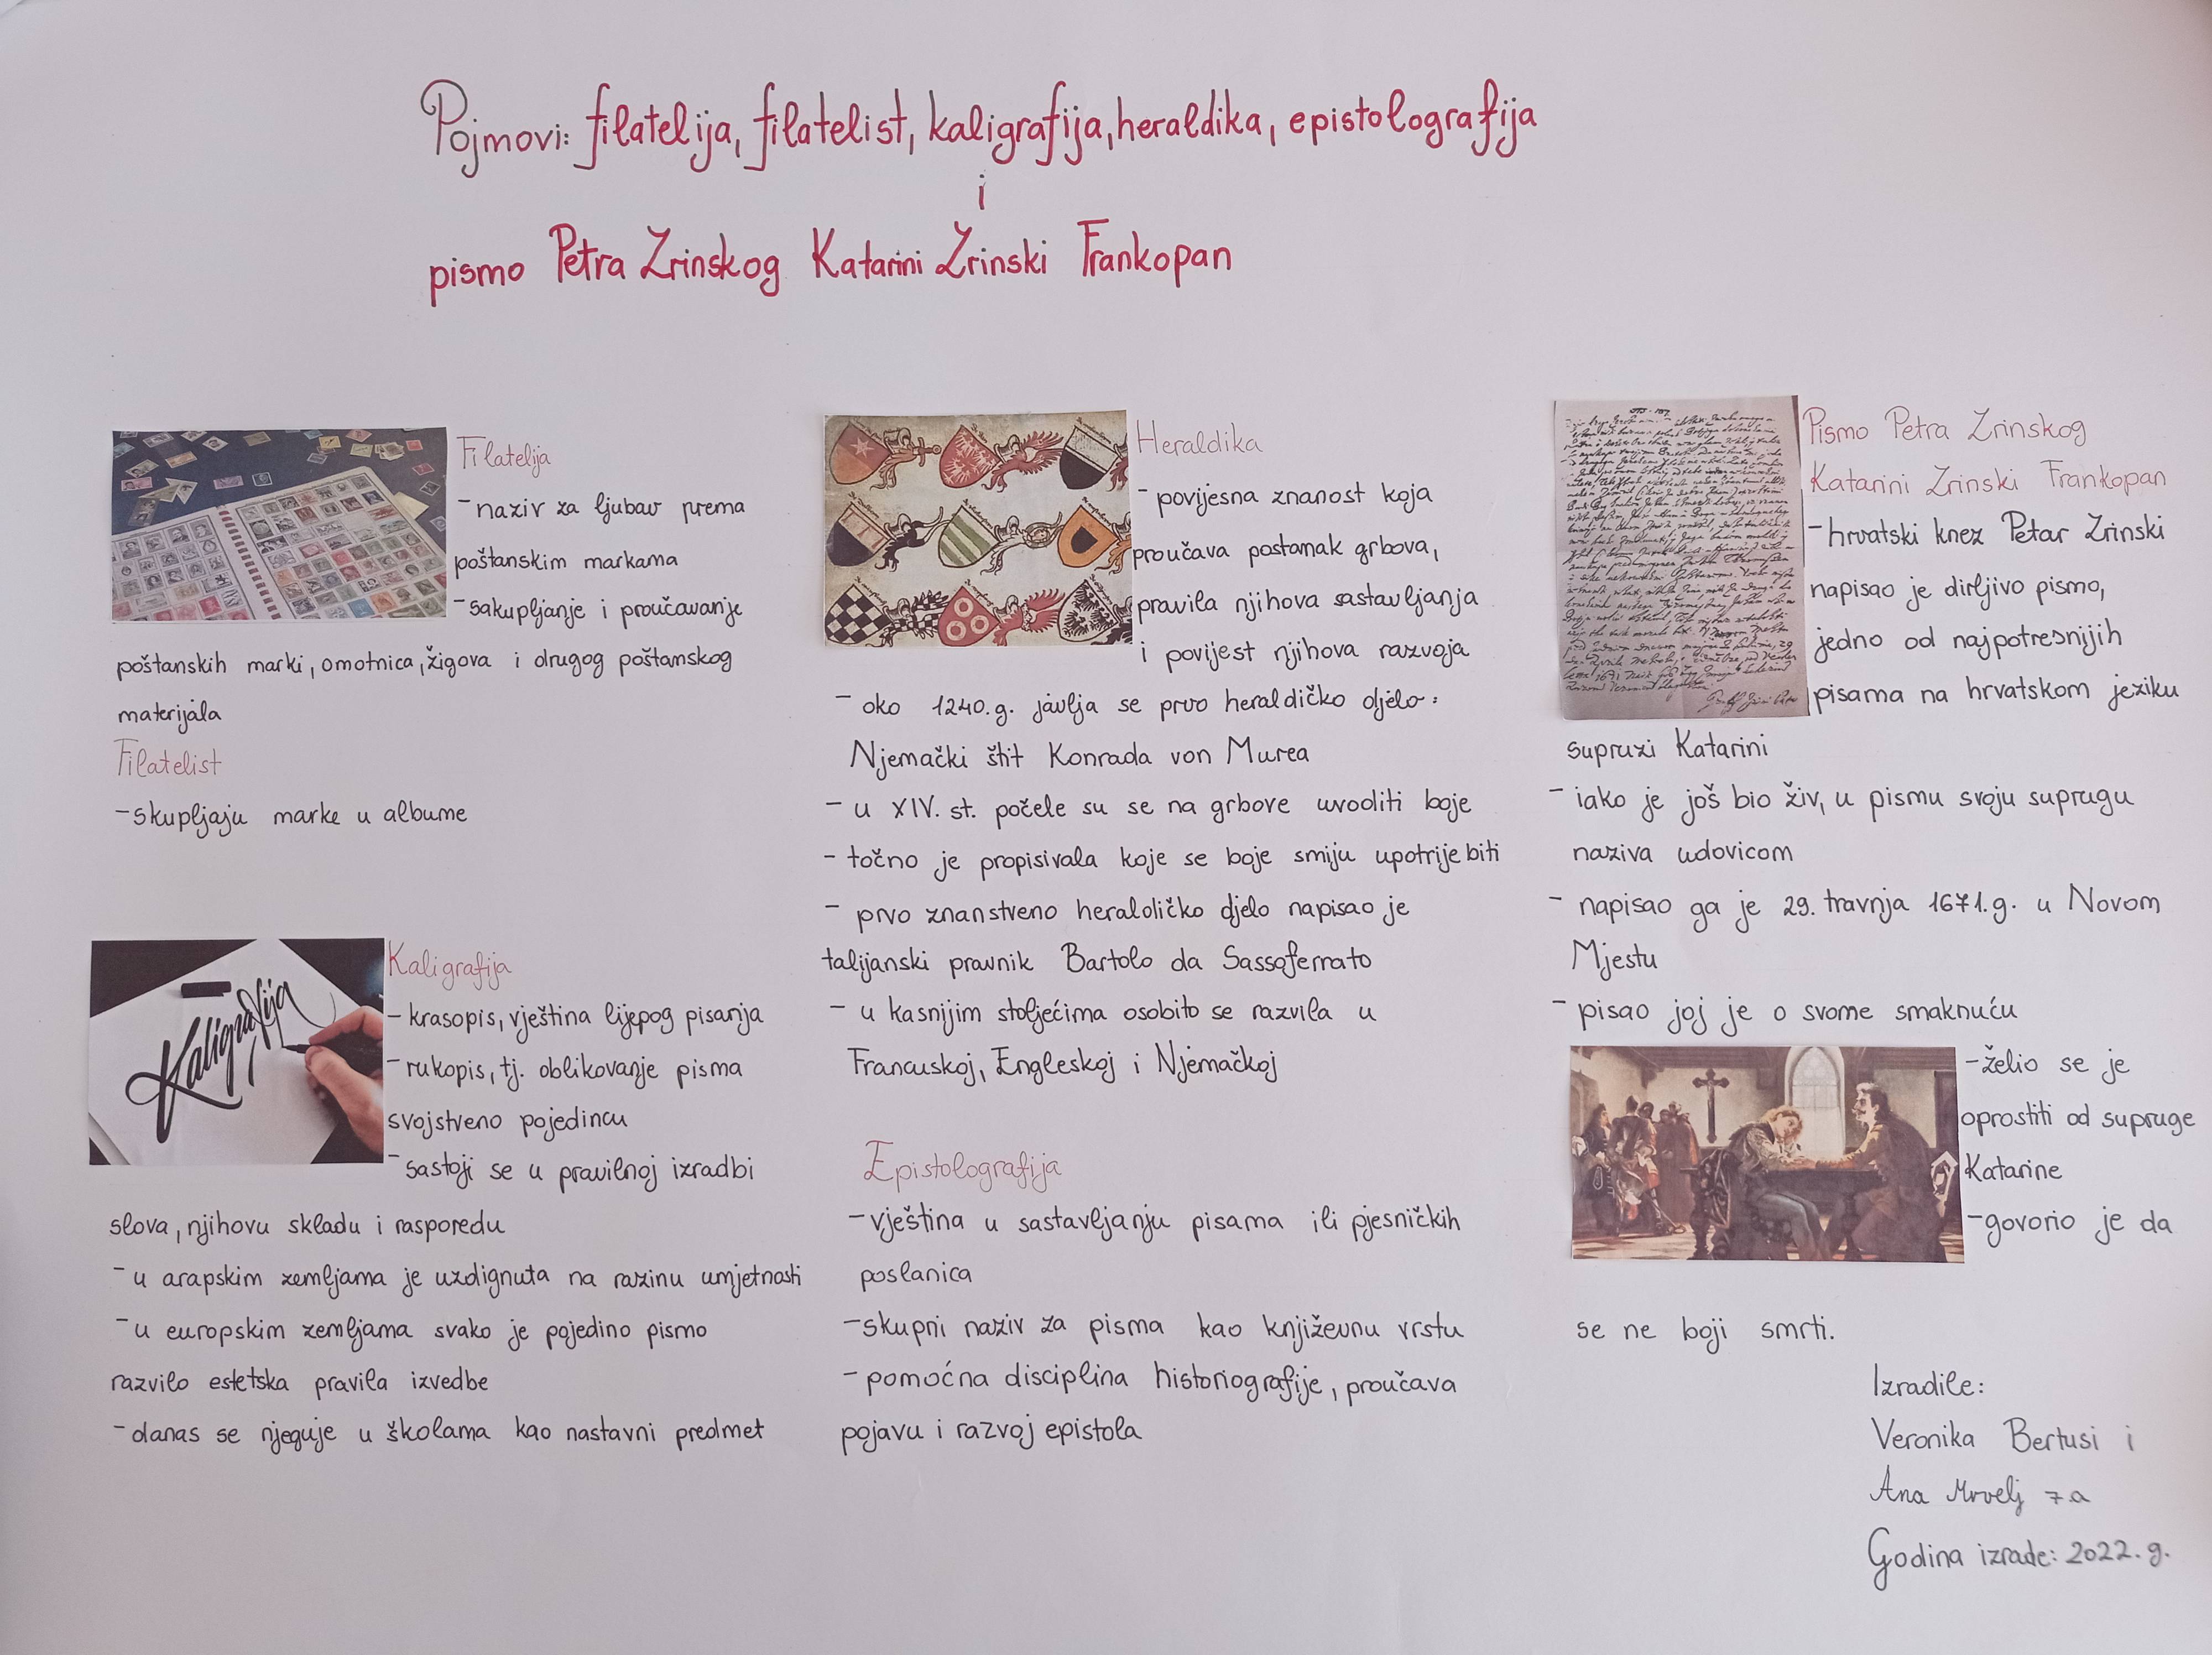 Pojmovi: filatelija, filatelist, kaligrafija, heraldika, epistolografija
i
pismo Petra Zrinskog Katarini Zrinski Frankopan
Filatelija
- naziv za ljubav prema
poštanskim markama
- sakupljanje i proučavanje
poštanskih marki, omotnica, žigova i drugog poštanskog
materijala
Filatelist
- skupljaju marke u albume
Kaligrafija
Kaligrafija
- krasopis, vještina lijepog pisanja
- rukopis, tj. oblikovanje pisma
svojstveno pojedincu
- sastoji se u pravilnoj izradbi
slova, njihovu skladu i rasporedu
- u arapskim zemljama je uzdignuta na razinu umjetnosti
- u europskim zemljama svako je pojedino pismo
razvilo estetska pravila izvedbe
- danas se njeguje u školama kao nastavni predmet
Heraldika
- povijesna znanost koja
proučava postanak grbova,
pravila njihova sastavljanja
i povijest njihova razvoja
- oko 1240. g. javlja se prvo heraldičko djelo:
Njemački štit Konrada von Murea
- u XIV. st. počele su se na grbove uvoditi boje
- točno je propisivala koje se boje smiju upotrijebiti
- prvo znanstveno heraldičko djelo napisao je
talijanski pravnik Bartolo da Sassoferrato
- u kasnijim stoljećima osobito se razvila u
Francuskoj, Engleskoj i Njemačkoj
Epistolografija
- vještina u sastavljanju pisama ili pjesničkih
poslanica
- skupni naziv za pisma kao književnu vrstu
- pomoćna disciplina historiografije, proučava
pojavu i razvoj epistola
Pismo Petra Zrinskog
Katarini Zrinski Frankopan
- hrvatski knez Petar Zrinski
napisao je dirljivo pismo,
jedno od najpotresnijih
pisama na hrvatskom jeziku
supruzi Katarini
- iako je još bio živ, u pismu svoju suprugu
naziva udovicom
- napisao ga je 29. travnja 1671. g. u Novom
Mjestu
- pisao joj je o svome smaknuću
- želio se je
oprostiti od supruge
Katarine
- govorio je da
se ne boji smrti.
Izradile:
Veronika Bertusi i
Ana Mrvelj 7.a
Godina izrade: 2022. g.